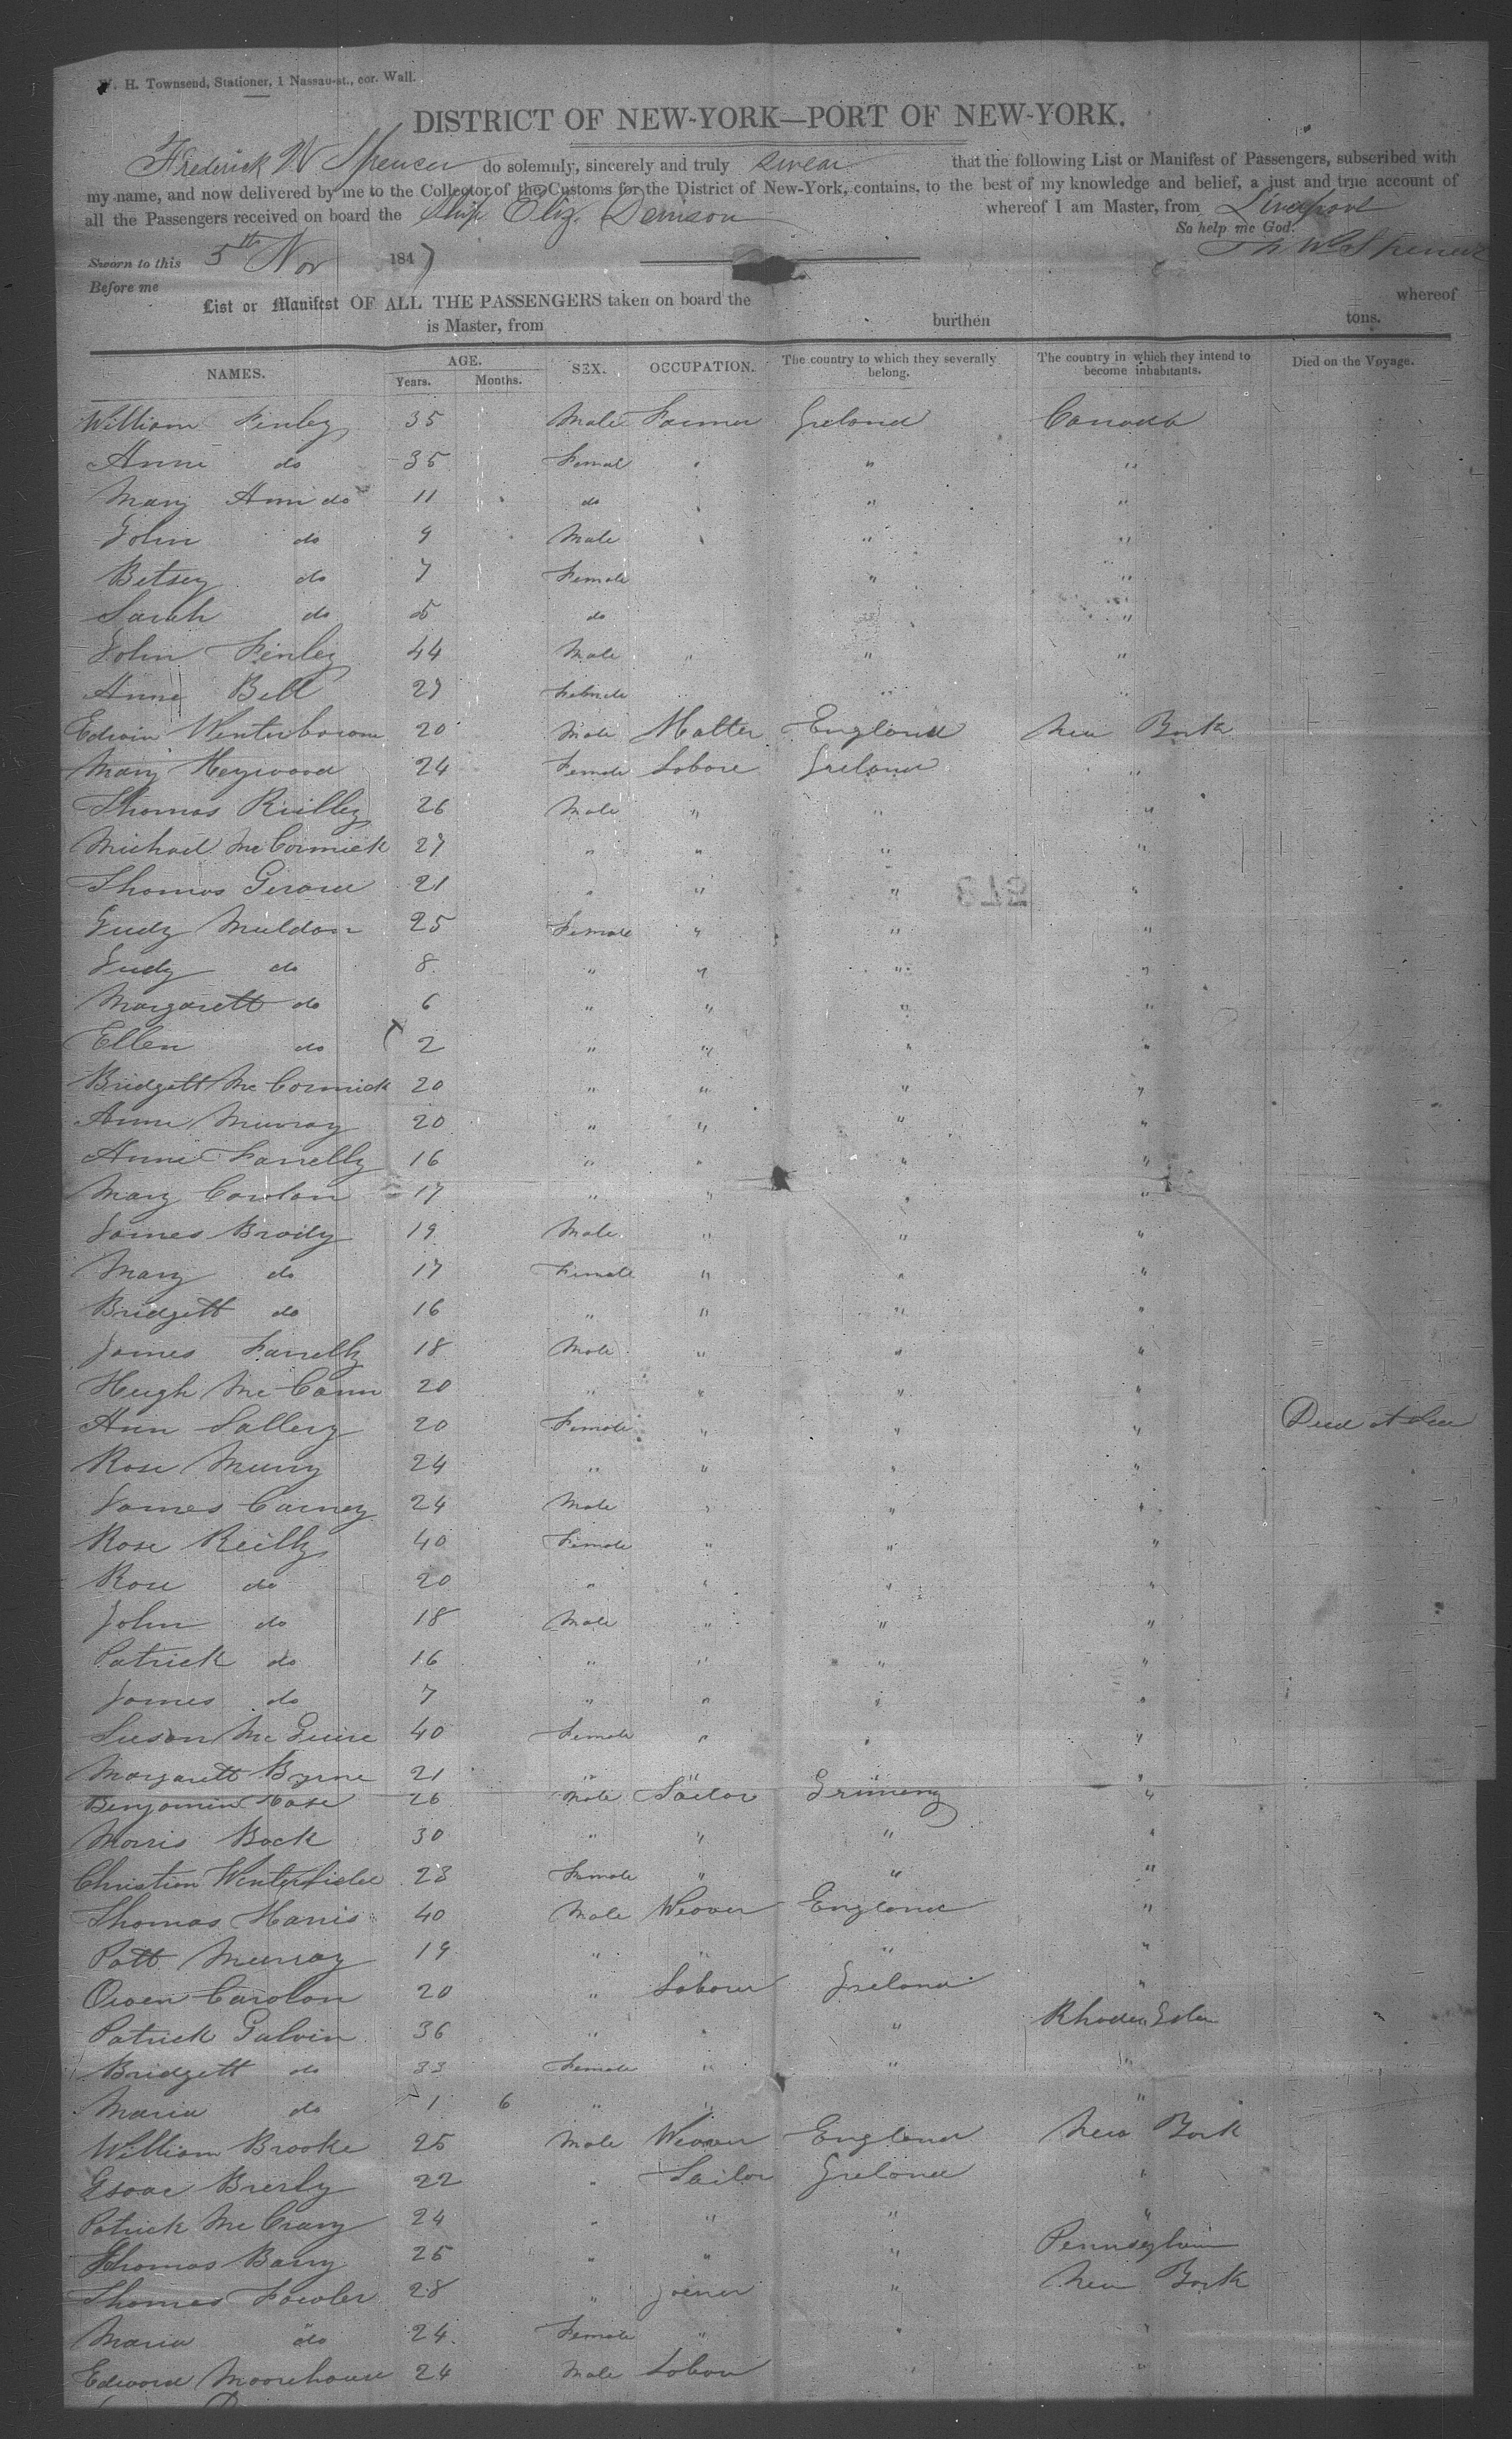 W. H. Townsend, Stationer, 1 Nassau-st., cor. Wall.
DISTRICT OF NEW-YORK—PORT OF NEW-YORK.
Frederick W Spencer do solemnly, sincerely and truly swear that the following List or Manifest of Passengers, subscribed with
my name, and now delivered by me to the Collector of the Customs for the District of New-York, contains, to the best of my knowledge and belief, a just and true account of
all the Passengers received on board the Ship Eliz. Denison whereof I am Master, from Liverpool
So help me God.
Sworn to this 5th Nov 1847
Before me
List or Manifest OF ALL THE PASSENGERS taken on board the whereof
is Master, from burthen tons.
NAMES. AGE. Years. Months. SEX. OCCUPATION. The country to which they severally belong. The country in which they intend to become inhabitants. Died on the Voyage.
William Finley 35 Male Farmer Ireland Canada
Anne do 35 Femal " " "
Mary Ann do 11 do " "
John do 9 Male " "
Betsey do 7 Female " "
Sarah do 5 do "
John Finley 44 Male " " "
Anne Bell 27 Female " "
Edwin Winterbourne 20 Male Hatter England New York
Mary Heywood 24 Female Labore Ireland "
Thomas Reilly 26 Male " " "
Michael McCormick 27 " " " "
Thomas Gerard 21 " " " "
Judy Muldon 25 Female " " "
Judy do 8 " " " "
Margarett do 6 " " " "
Ellen do 2 " " " "
Bridgett McCormick 20 " " " "
Anne Murray 20 " " " "
Anne Farrelly 16 " " " "
Mary Carolan 17 " " " "
James Brady 19 Male " " "
Mary do 17 Female " " "
Bridgett do 16 " " " "
James Farrelly 18 Male " " "
Hugh McCann 20 " " " "
Ann Sallery 20 Female " " " Died at Sea
Rose Murry 24 " " " "
James Carney 24 Male " " "
Rose Reilly 40 Female " " "
Rose do 20 " " " "
John do 18 Male " " "
Patrick do 16 " " " "
James do 7 " " " "
Susan McGuire 40 Female " " "
Margarett Byrne 21 " " " "
Benjamin Hase 26 Male Sailor Grimeny "
Morris Bock 30 " " " "
Christian 23 Female " " "
Thomas Harris 40 Male Weaver England "
Patt Murray 19 " " " "
Owen Carolan 20 " Labour Ireland "
Patrick Galvin 36 " " " Rhode
Bridgett do 33 Female " " "
Maria do 1 6 " " "
William Brooke 25 Male Weaver England New York
Isaac Brerly 22 " Sailor Ireland "
Patrick McCrary 24 " " " "
Thomas Barry 25 " " " Pennsylvan
Thomas Fowler 28 " Joiner " New York
Maria do 24 Female " " "
Edward Moorehouse 24 Male Labour " "